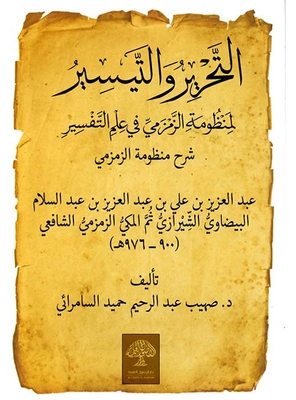 التَّحْرِيرُ وَالتَّيْسِيرُ
لِمَنْظُومَةِ الزَّمْزَمِيِّ فِي عِلْمِ التَّفْسِيرِ
شرح منظومة الزمزمي
عبد العزيز بن علي بن عبد العزيز بن عبد السلام
البيضاويُّ الشِّيرازيُّ ثُمَّ المكيُّ الزمزميُّ الشافعي
(٩٠٠ – ٩٧٦هـ)
تأليف
د. صهيب عبد الرحيم حميد السامرائي